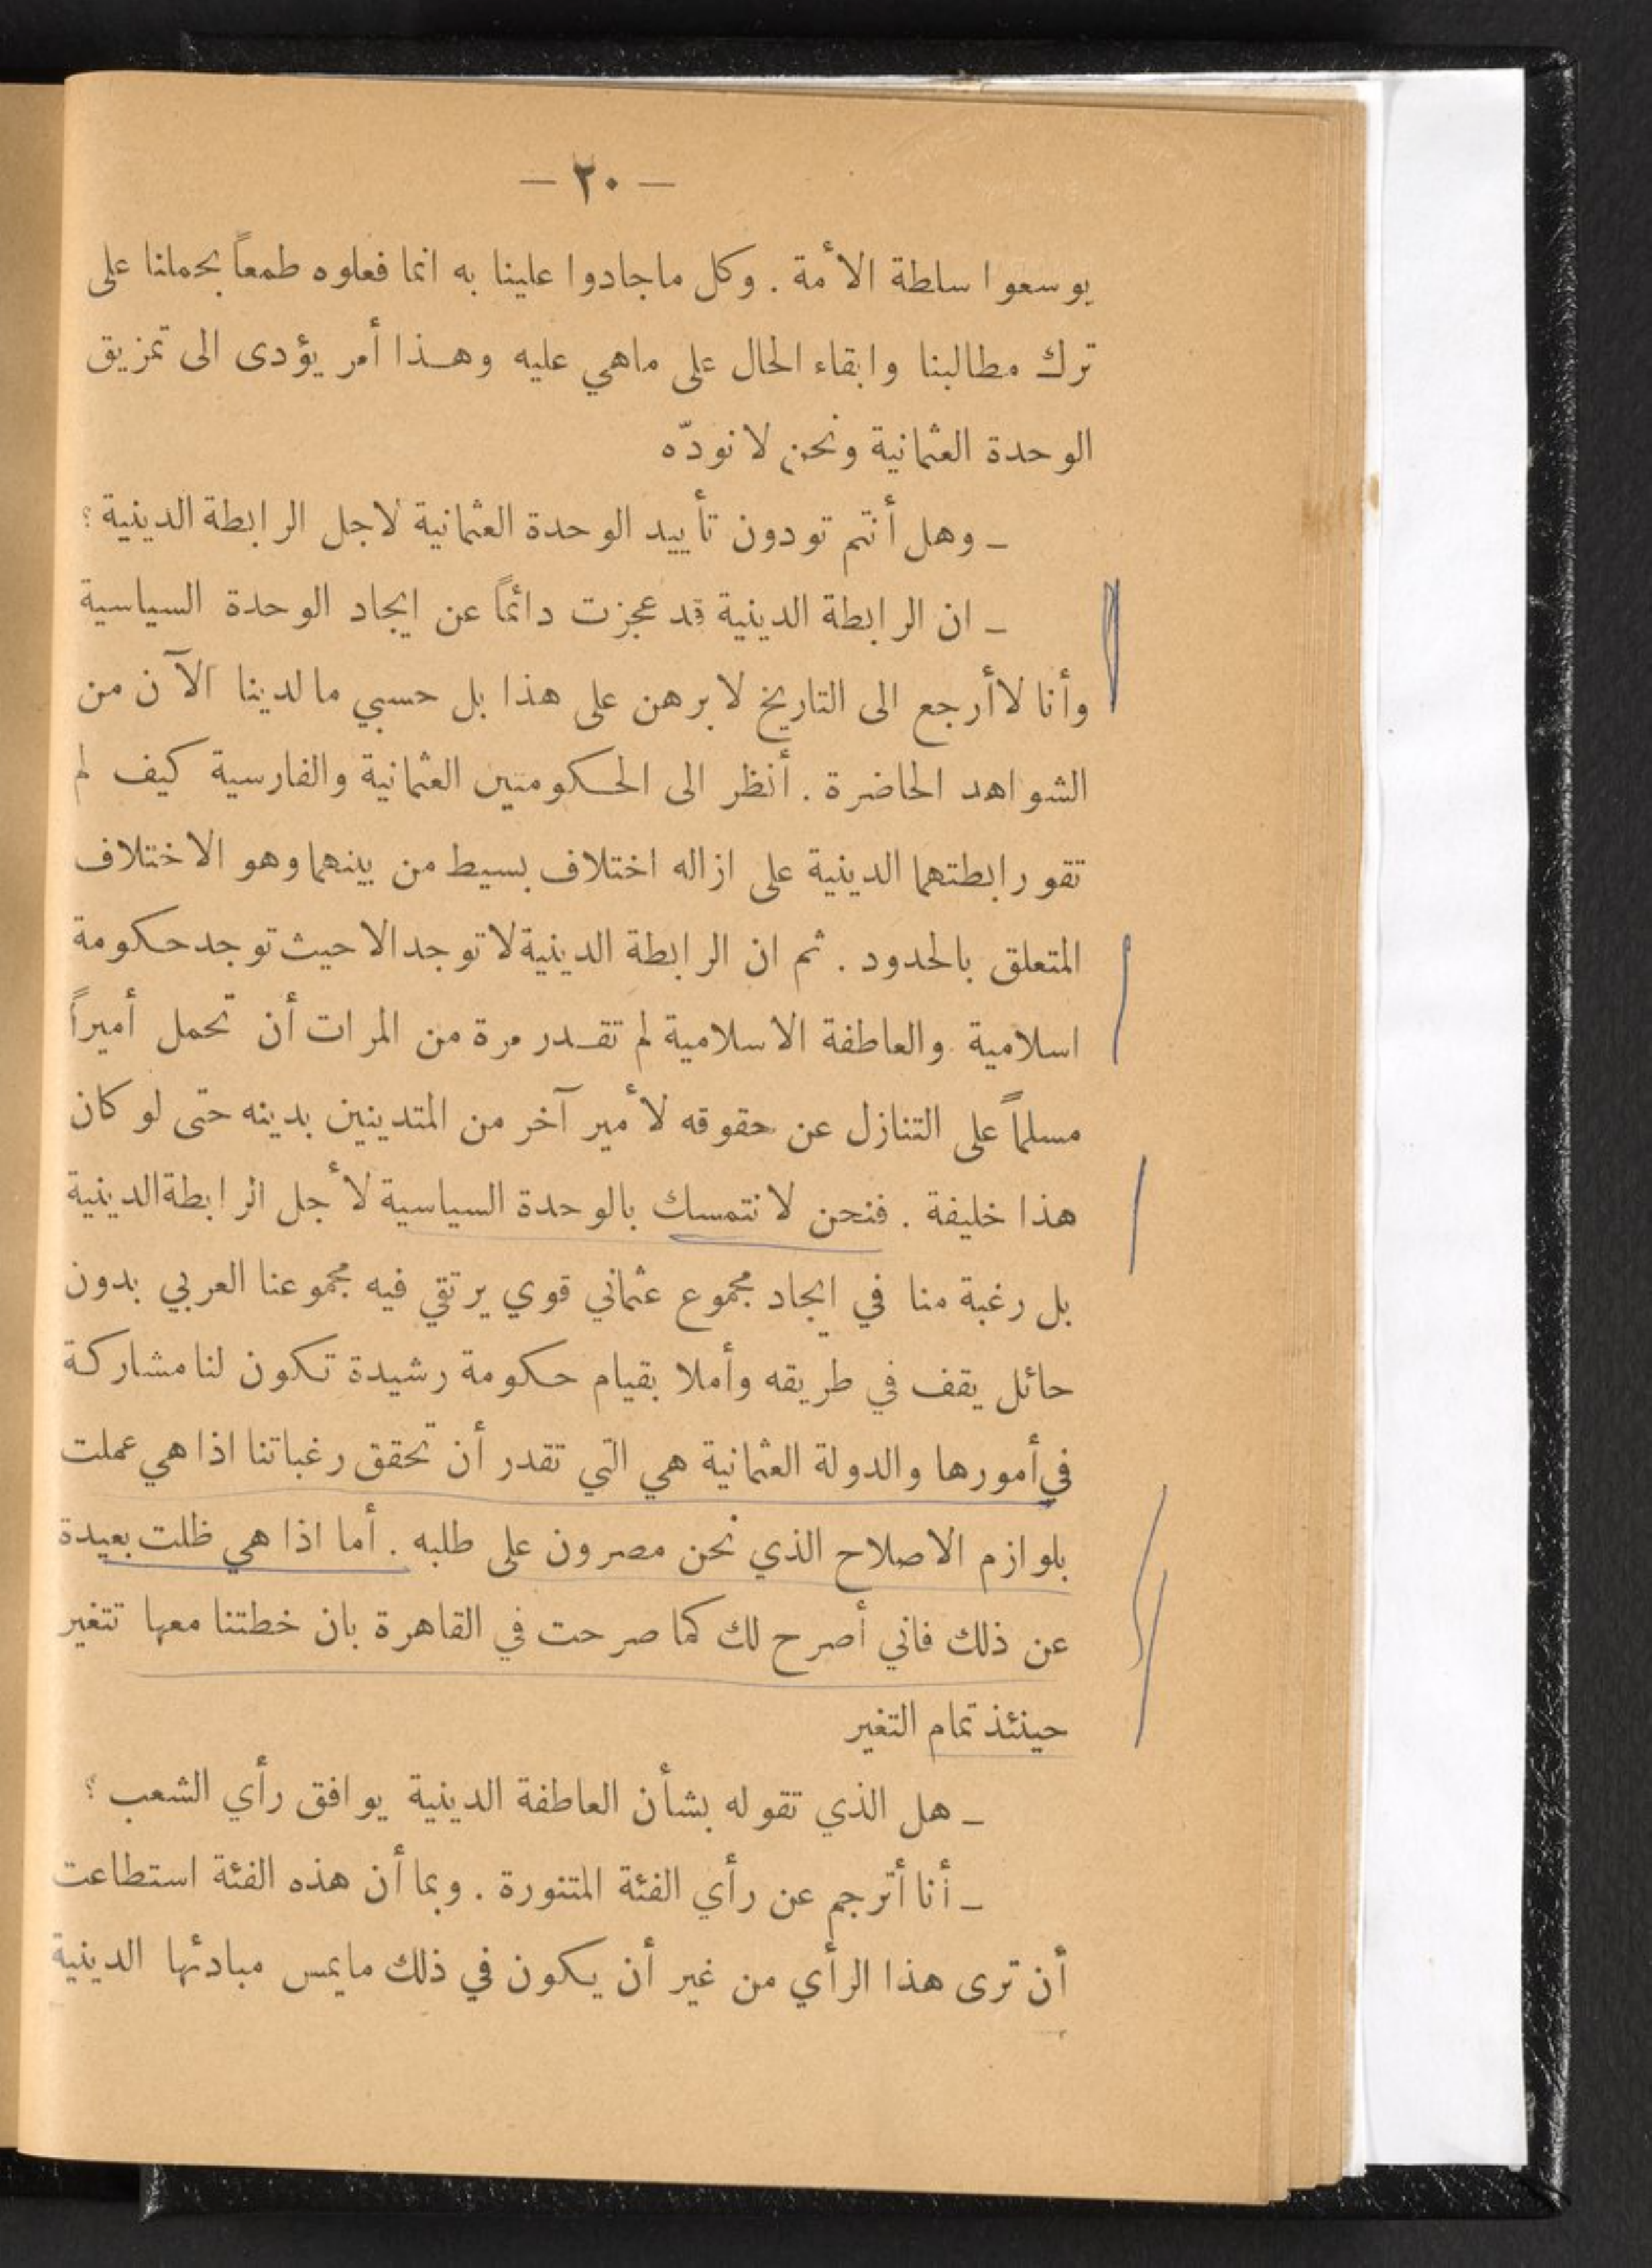 — ٢٠ —
يوسعوا سلطة الأمة . وكل ماجادوا علينا به انما فعلوه طمعاً بحملنا على
ترك مطالبنا وابقاء الحال على ماهي عليه وهـذا أمر يؤدى الى تمزيق
الوحدة العثمانية ونحن لا نودّه
ـ وهل أنتم تودون تأييد الوحدة العثمانية لاجل الرابطة الدينية ؟
ـ ان الرابطة الدينية قد عجزت دائماً عن ايجاد الوحدة السياسية
وأنا لاأرجع الى التاريخ لابرهن على هذا بل حسبي مالدينا الآن من
الشواهد الحاضرة . أنظر الى الحـكومتين العثمانية والفارسية كيف لم
تقو رابطتهما الدينية على ازاله اختلاف بسيط من بينهما وهو الاختلاف
المتعلق بالحدود . ثم ان الرابطة الدينية لاتوجد الا حيث توجد حكومة
اسلامية والعاطفة الاسلامية لم تقـدر مرة من المرات أن تحمل أميراً
مسلماً على التنازل عن حقوقه لأمير آخر من المتدينين بدينه حتى لو كان
هذا خليفة . فنحن لا نتمسك بالوحدة السياسية لأجل الرابطة الدينية
بل رغبة منا في ايجاد مجموع عثماني قوي يرتقي فيه مجموعنا العربي بدون
حائل يقف في طريقه وأملا بقيام حكومة رشيدة تكون لنا مشاركة
في أمورها والدولة العثمانية هي التي تقدر أن تحقق رغباتنا اذا هي عملت
بلوازم الاصلاح الذي نحن مصرون على طلبه . أما اذا هي ظلت بعيدة
عن ذلك فاني أصرح لك كما صرحت في القاهرة بان خطتنا معها تتغير
حينئذ تمام التغير
ـ هل الذي تقوله بشأن العاطفة الدينية يوافق رأي الشعب ؟
ـ أنا أترجم عن رأي الفئة المتنورة . وبما أن هذه الفئة استطاعت
أن ترى هذا الرأي من غير أن يكون في ذلك مايمس مبادئها الدينية